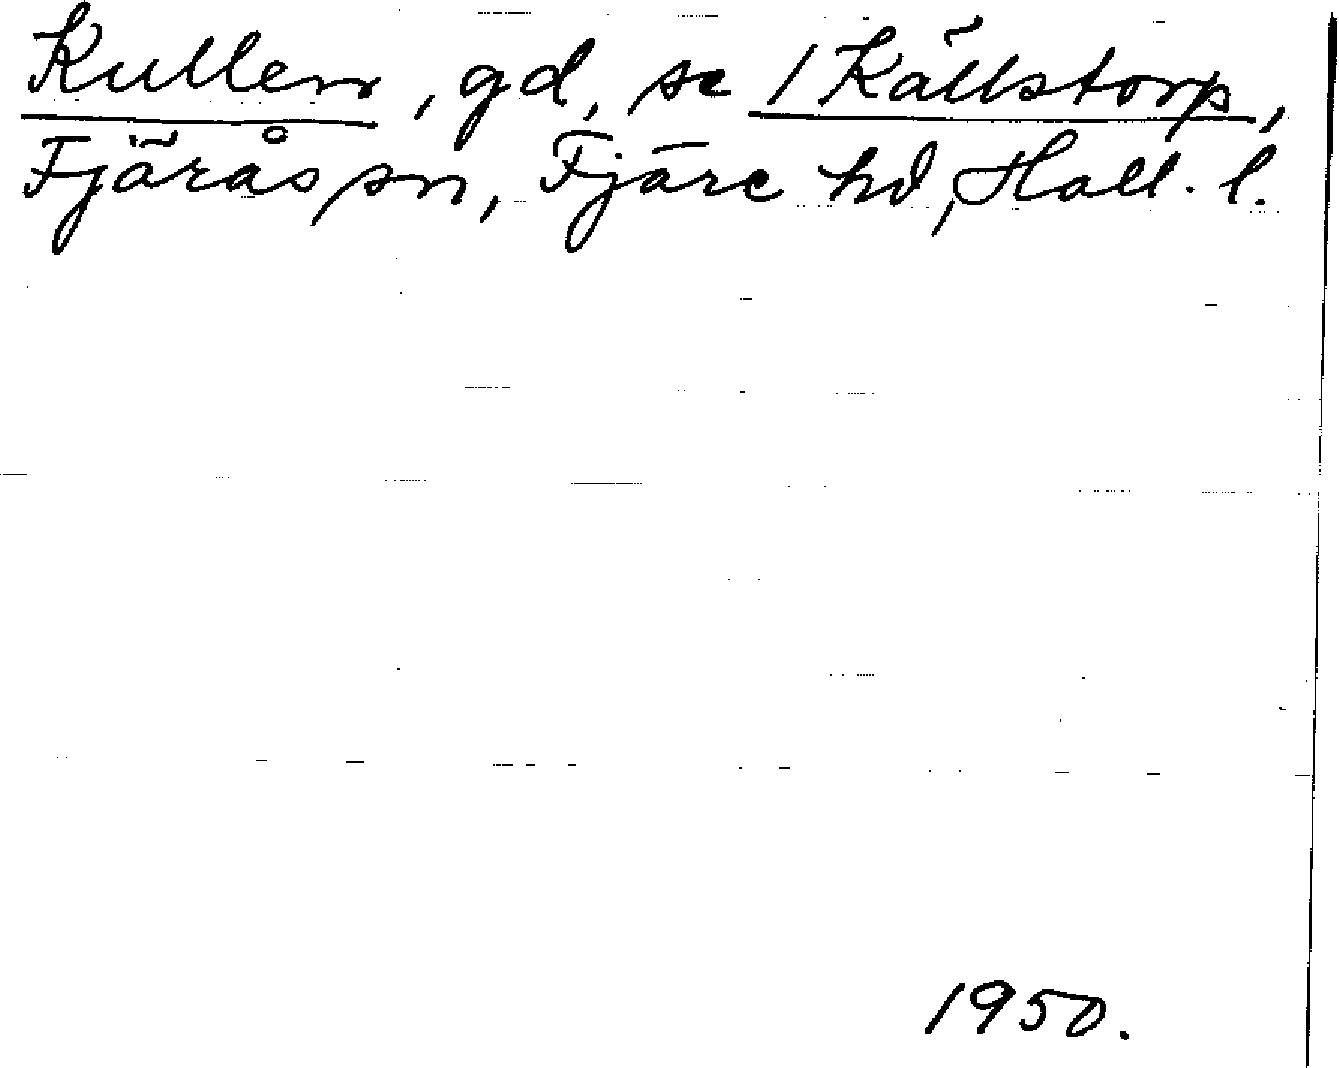 Kullen, gd, se 1 Källstorp,
Fjärås sn, Fjäre hd, Hall. l.
1950.